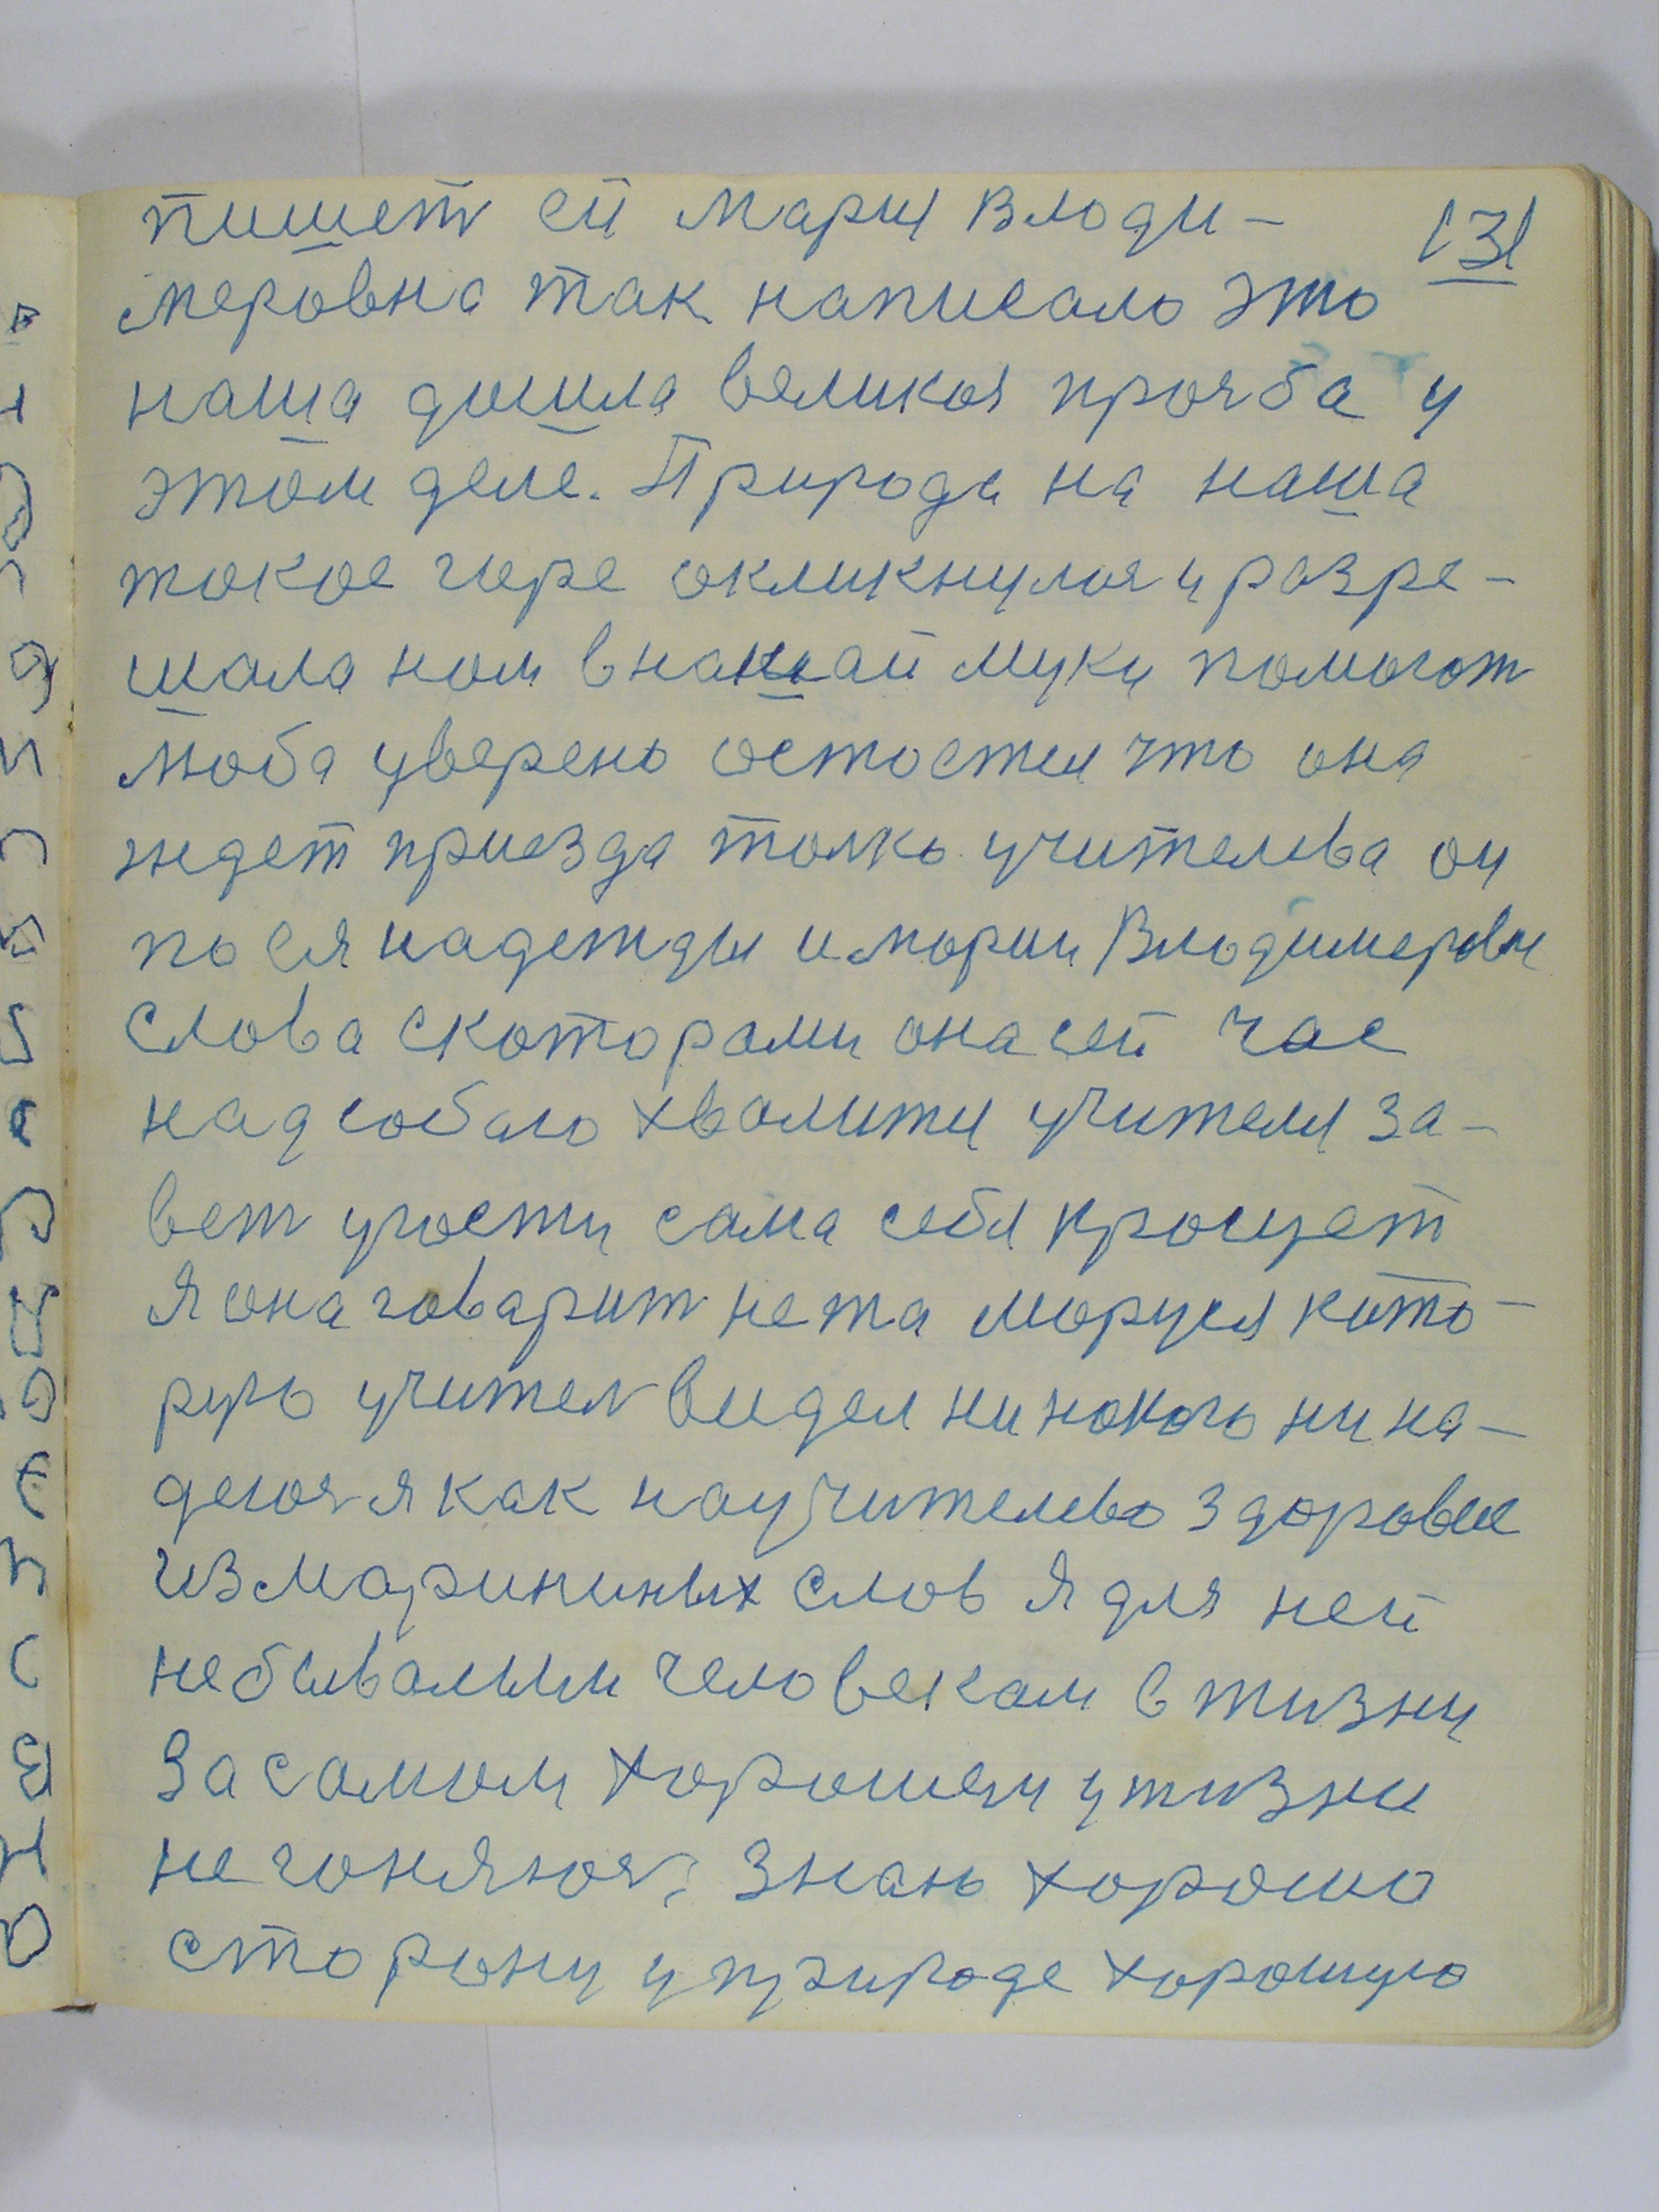 пишет ей Мария Влоди-
131
меровна так написало это
наша дошла великоя проязба у
этом деле. Природа на наша
токое горе окликнулоя и разре-
шала ном в нашай муки помогот
люба уверено остоетея что она
ждет приезда толко учителева он
по ея надежды и мории Влодимеровы
слова скоторами она сей час
над собаю хволитя учителя за-
вет угости сама себя просует
Я она говарит не та моруся като-
рую учител видел ни нокого ни на-
деюся я как на учителево здоровие
из марининых слов я для ней
небывалым человекам в жизни
За самым хорошем у жизни
не гоняюся, знаю хорошо
сторону у природе хорошую